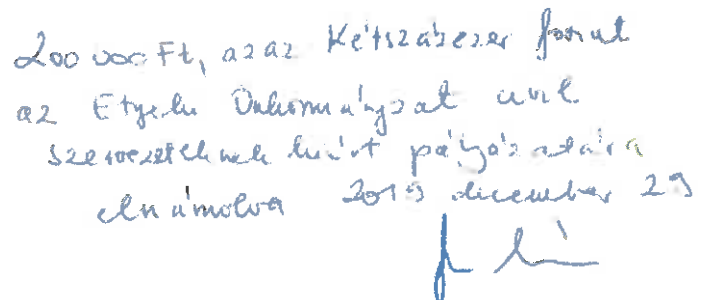 200 000 Ft, azaz Kétszázezer forint
az Etyeki Önkormányzat civil
szervezeteknek kiírt pályázatára
elszámolva 2019 december 29